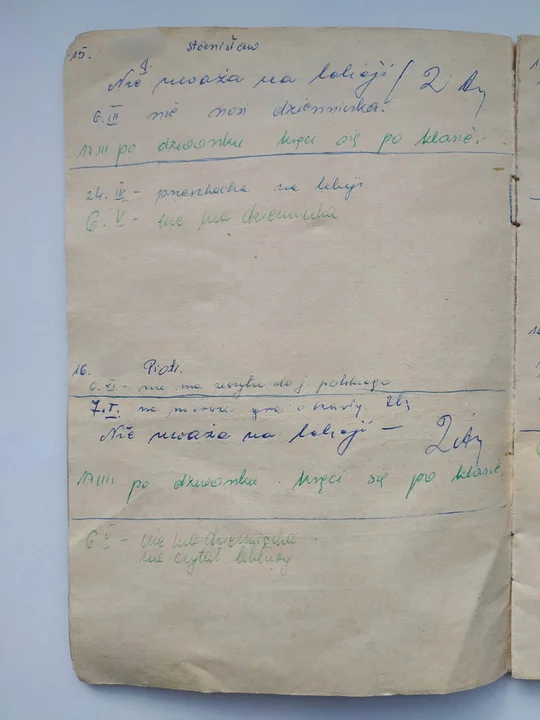 15. Stanisław
Nie uważa na lekcji
6.III nie nosi dzienniczka.
17.III po dzwonku kręci się po klasie.
24.IV - przeszkadza na lekcji
6.V - nie ma dzienniczka
16. Piotr.
6.XI - nie ma zeszytu do j polskiego
7.I. na przerwie gra w karty
Nie uważa na lekcji -
17.III po dzwonku kręci się po klasie.
6.V - nie ma dzienniczka
nie czytał lektury